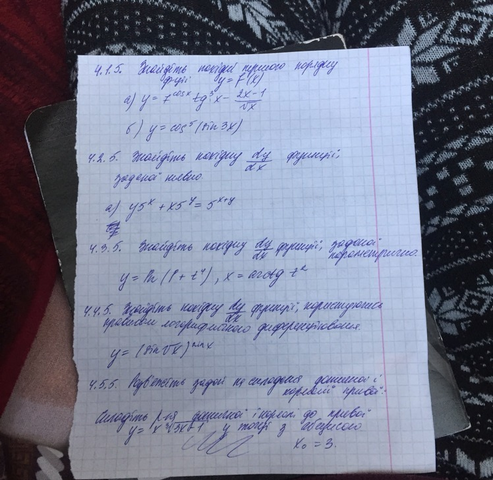 4.1.5. Знайдіть похідні першого порядку
функції y = f(x)
а) y = 7^cosx tg³x - (2x-1)/√x
б) y = cos⁵(sin3x)
4.2.5. Знайдіть похідну dy/dx функції,
заданої неявно
а) y5^x + x5^y = 5^(x+y)
4.3.5. Знайдіть похідну dy/dx функції, заданої
параметрично.
y = ln(1+t⁴), x = arctg t²
4.4.5. Знайдіть похідну dy/dx функції, користуючись
правилом логарифмічного диференціювання
y = (sin√x)
4.5.5. Розв'яжіть задачі на складання дотичної і
нормалі кривої.
Складіть р-ня дотичної і нормалі до кривої
у точці з абсцисою
x₀ = 3.